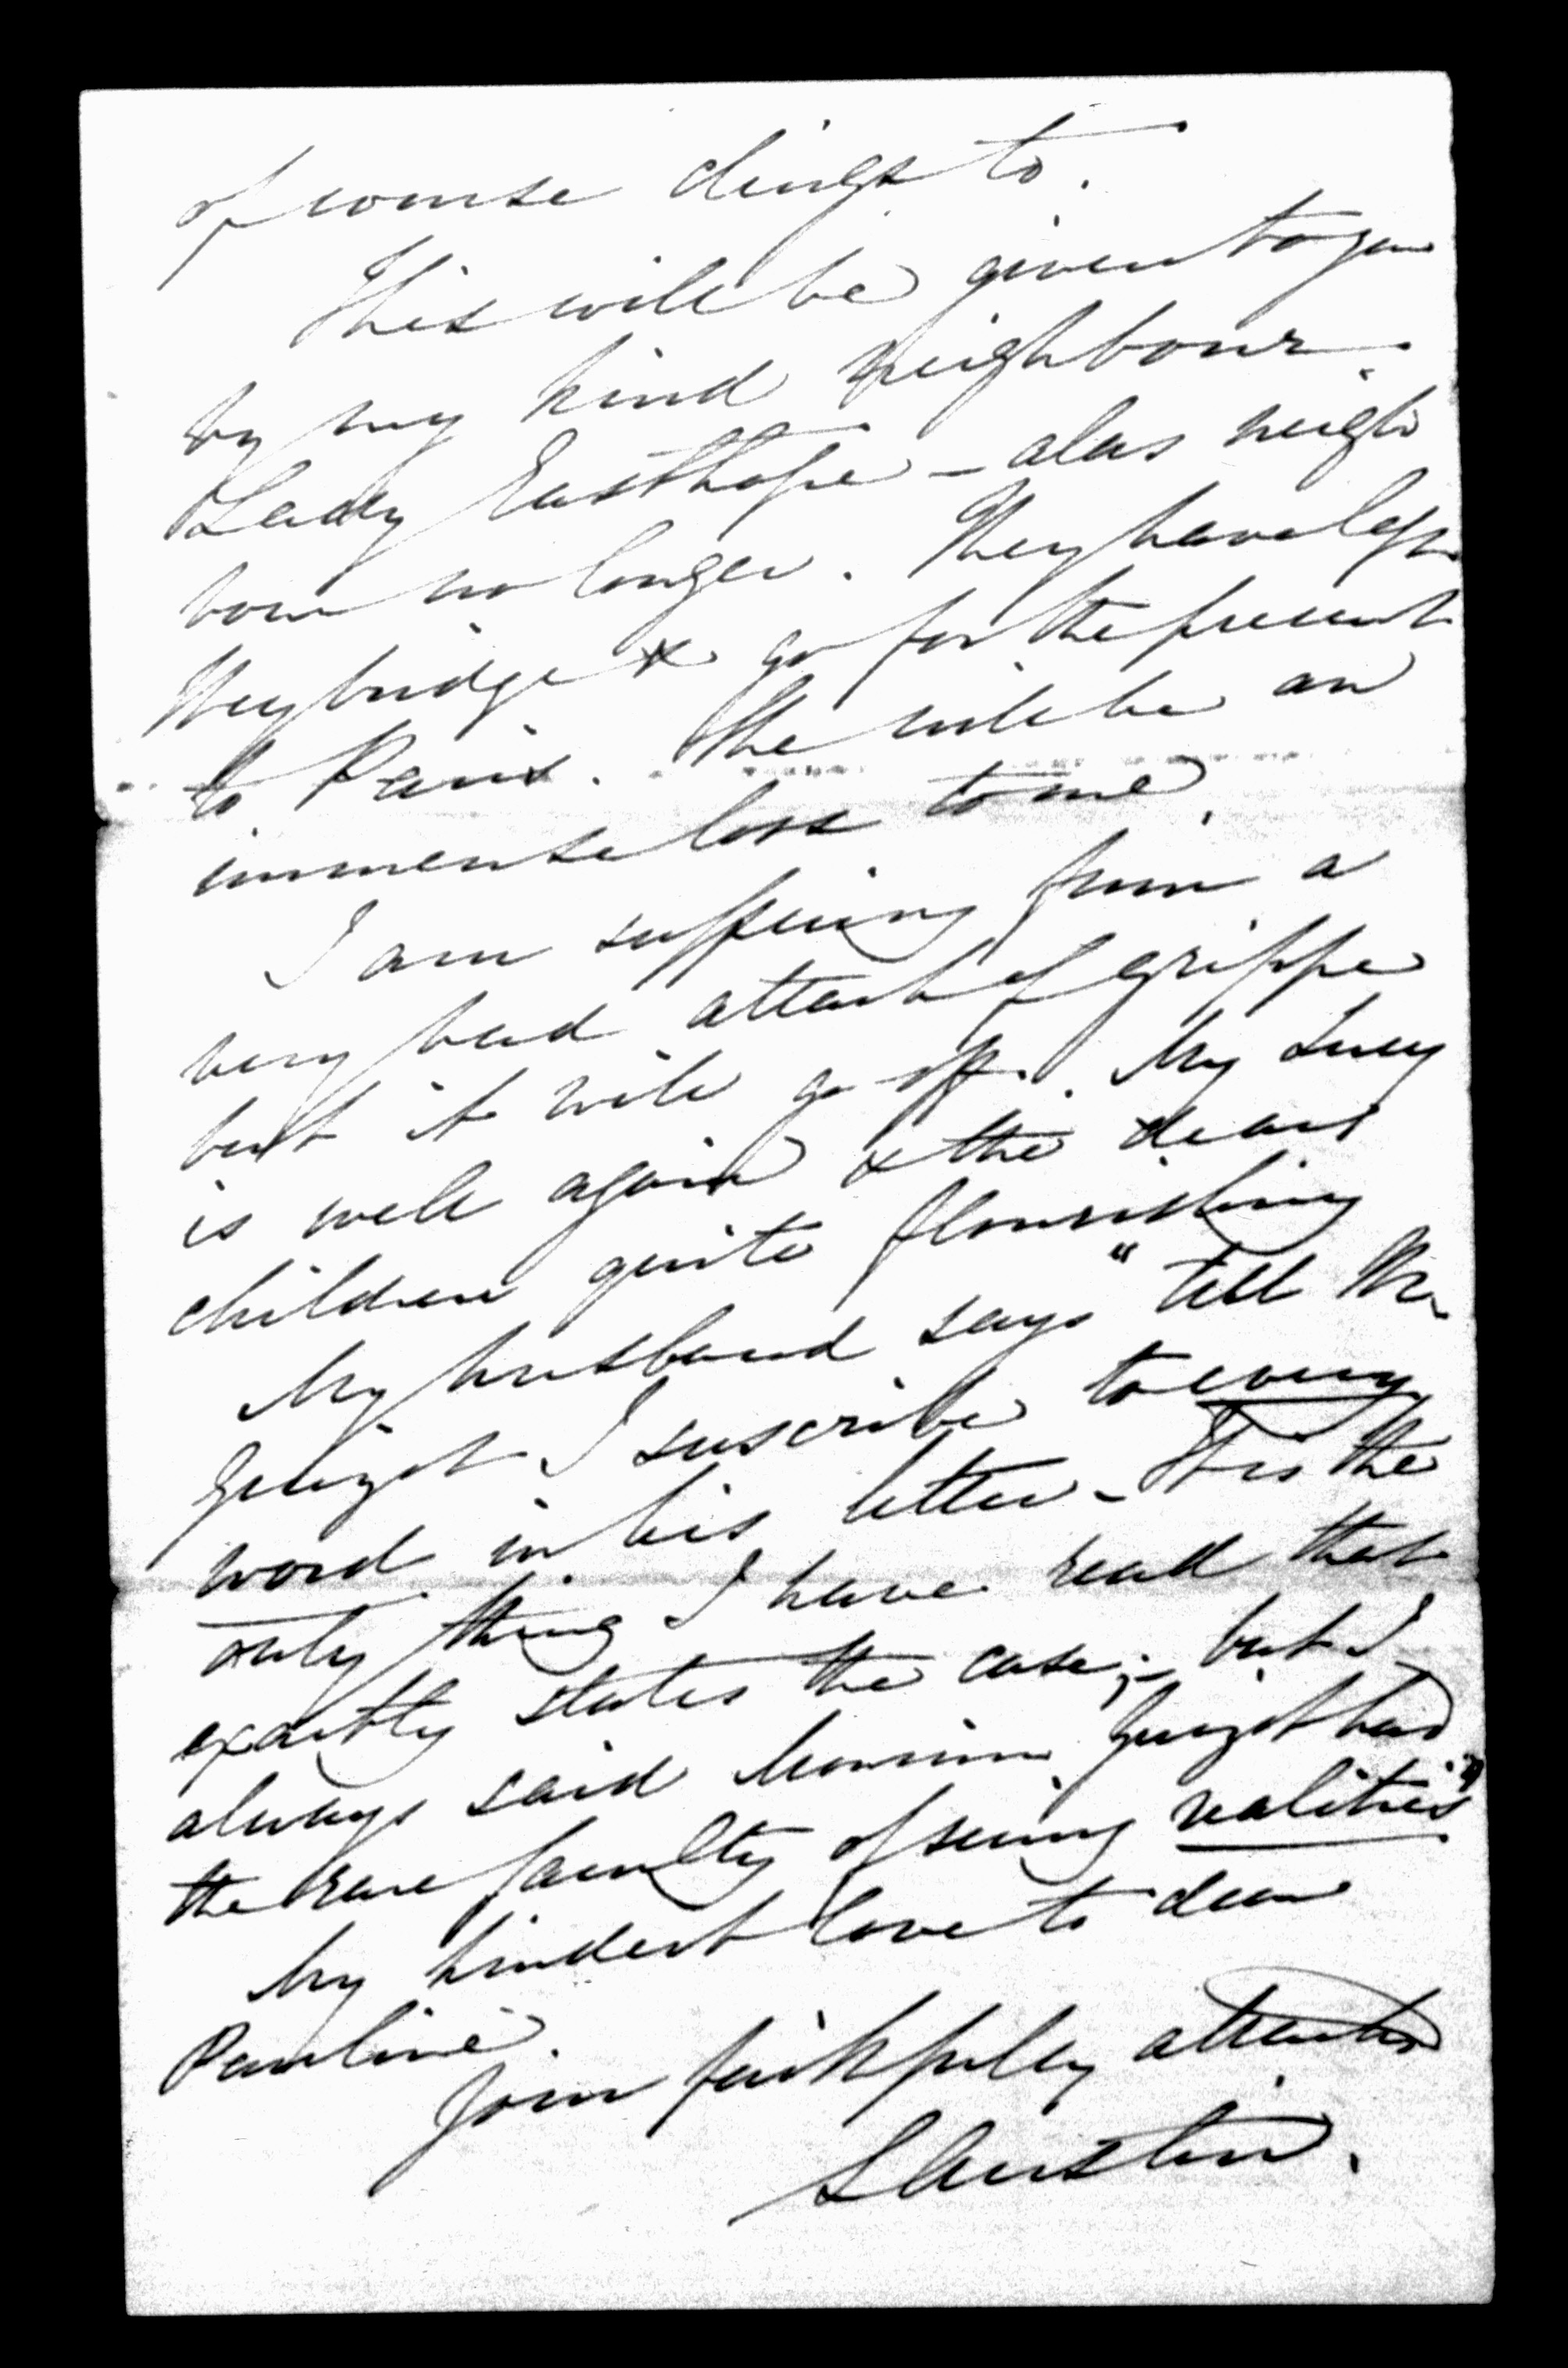 of course clings to.
This will be given to you
by my kind neighbour
Lady Easthope – alas neigh
bour no longer. They have left
Weybridge & go for the present
to Paris. She will be an
immense loss to me.
I am suffering from a
very bad attack of grippe
but it will go off. My Lucy
is well again & the dear
children quite flourishing
My husband says "tell Mr
Guizot I suscribe to every
word in his letter – It is the
only thing I have read that
exactly states the case; – but I
always said Monsieur Guizot had
the rare faculty of seeing realities"
My kindest love to dear
Pauline.
Your faithfully attached
S Austin.